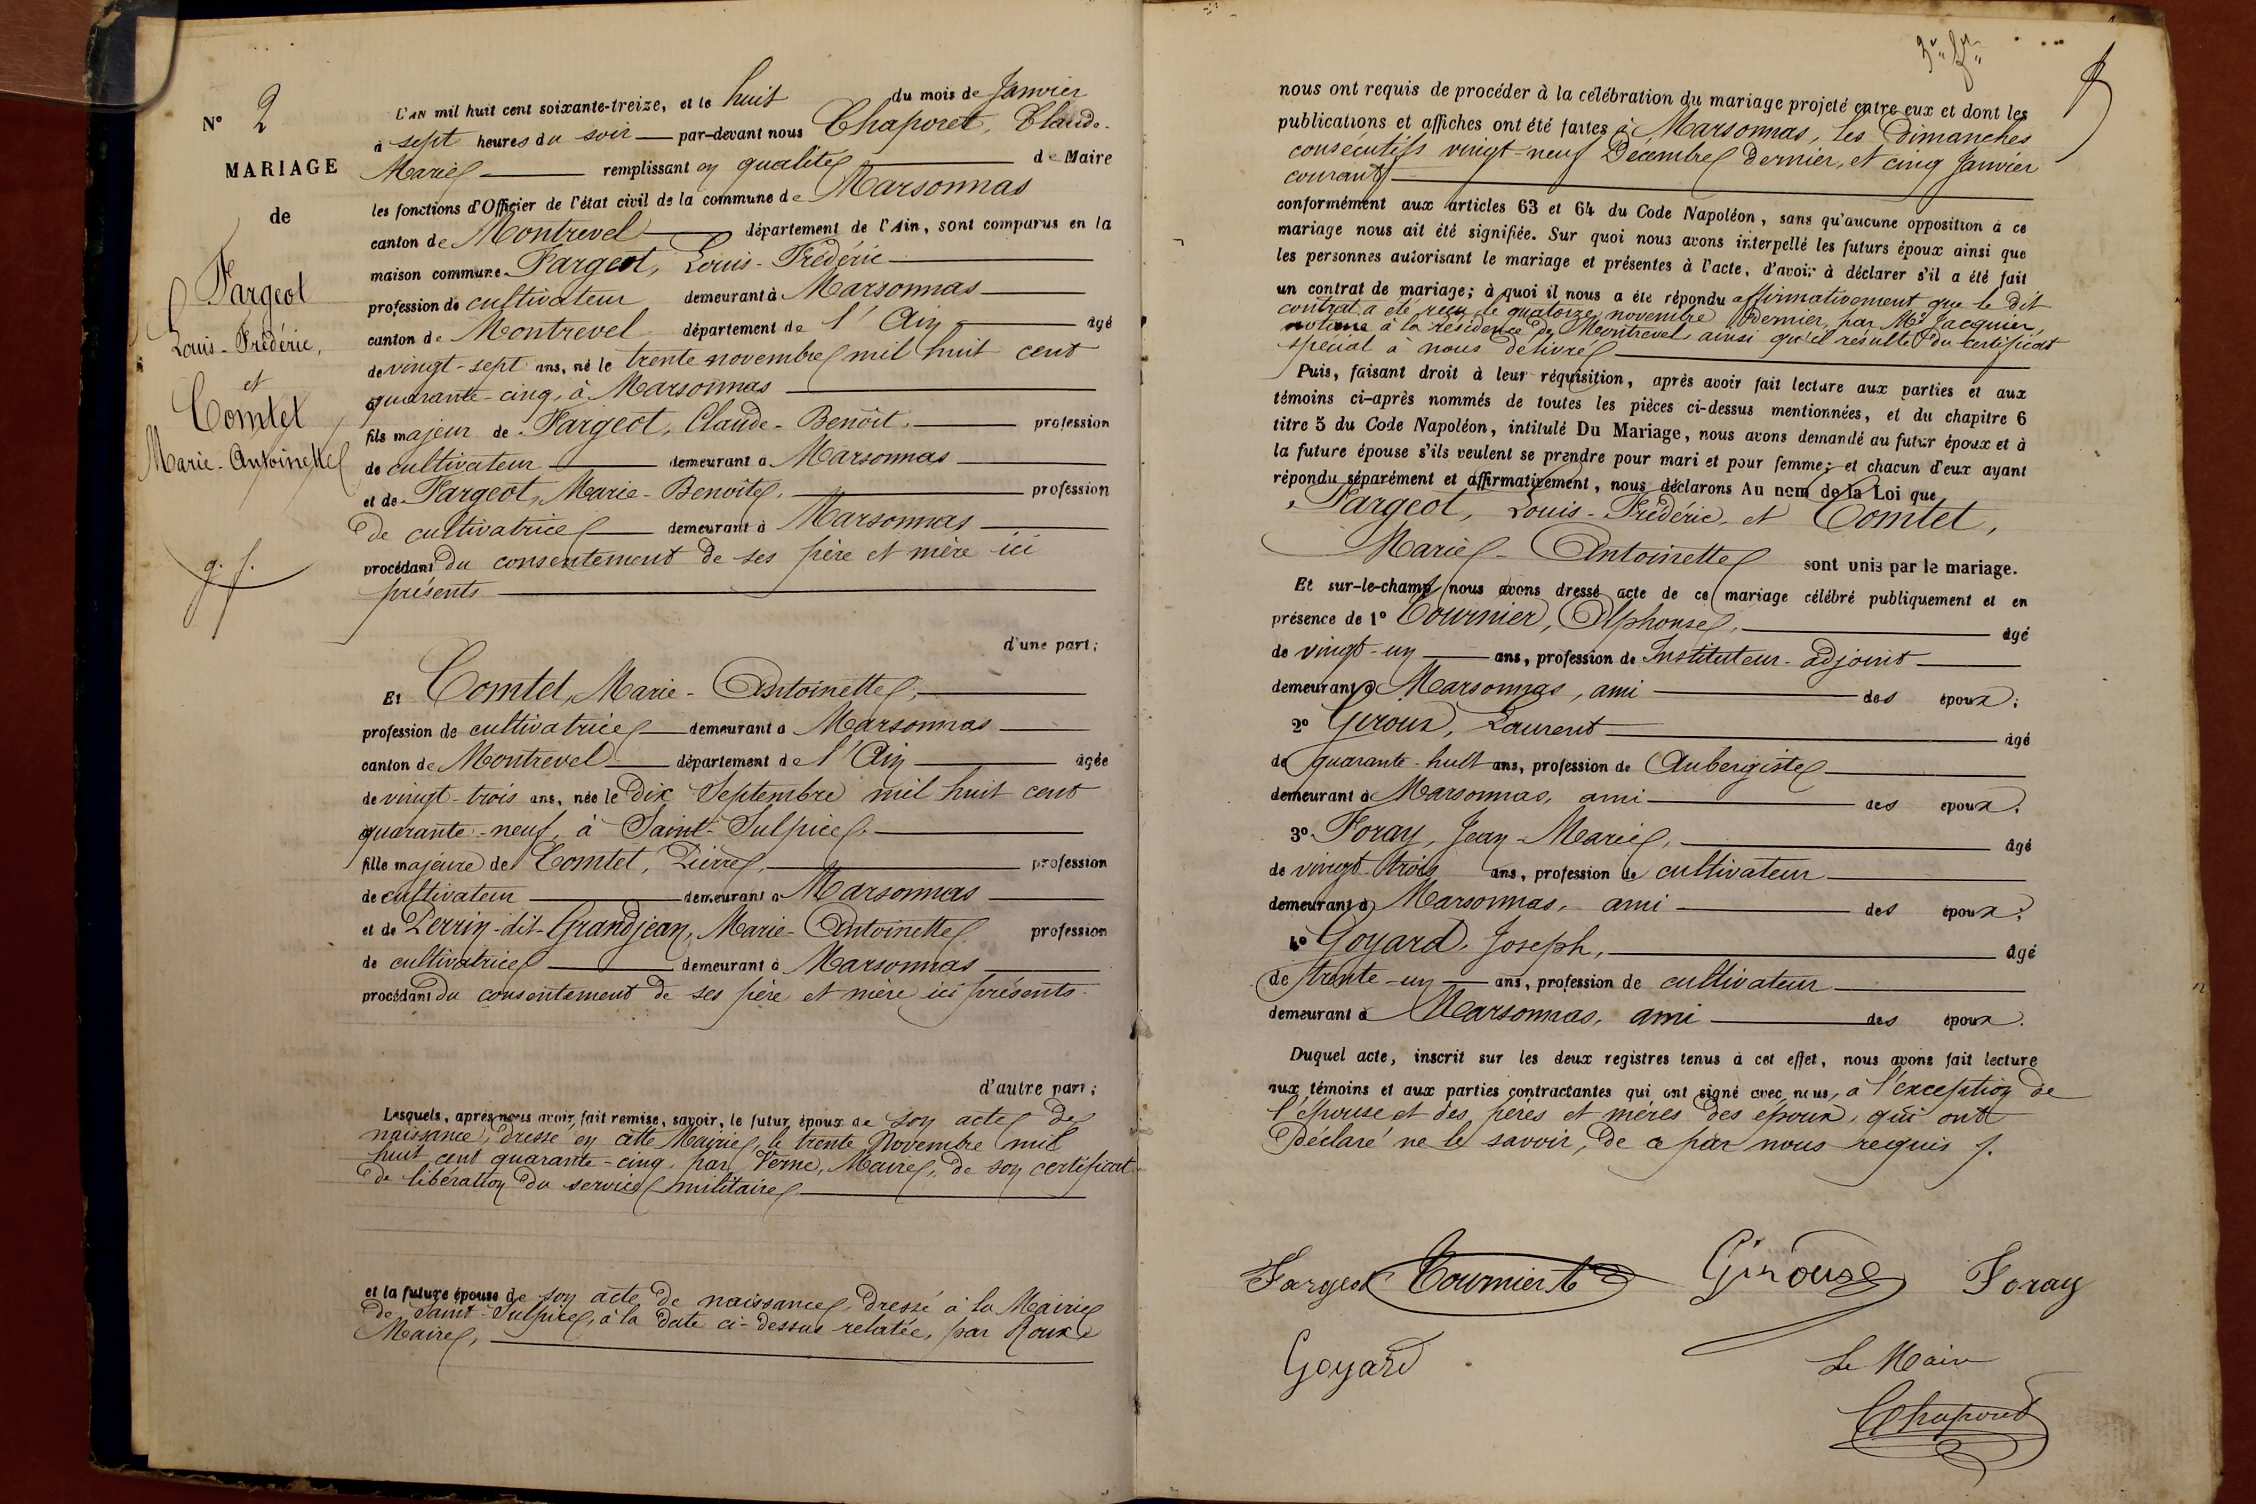 N° 2
MARIAGE
de
Fargeot
Louis-Frédéric,
et
Comtet
Marie-Antoinette
L'AN mil huit cent soixante-treize, et le huit du mois de Janvier
à sept heures du soir par-devant nous Chaporet, Claude-
Marie remplissant en qualité de Maire
les fonctions d'Officier de l'état civil de la commune de Marsonnas
canton de Montrevel département de l'Ain, sont comparus en la
maison commune Fargeot, Louis-Frédéric
profession de cultivateur demeurant à Marsonnas
canton de Montrevel département de l'Ain âgé
de vingt-sept ans, né le trente novembre mil huit cent
quarante-cinq, à Marsonnas
fils majeur de Fargeot, Claude-Benoît, profession
de cultivateur demeurant à Marsonnas
et de Fargeot, Marie-Benoîte, profession
de cultivatrice demeurant à Marsonnas
procédant du consentement de ses père et mère ici
présents
d'une part;
Et Comtet, Marie-Antoinette,
profession de cultivatrice demeurant à Marsonnas
canton de Montrevel département de l'Ain âgée
de vingt-trois ans, née le Dix Septembre mil huit cent
quarante-neuf, à Saint-Sulpice,
fille majeure de Comtet, Pierre, profession
de cultivateur demeurant à Marsonnas
et de Perrin-dit-Grandjean, Marie-Antoinette profession
de cultivatrice demeurant à Marsonnas
procédant du consentement de ses père et mère ici présents.
d'autre part;
Lesquels, après nous avoir fait remise, savoir, le futur époux de son acte de
naissance, dressé en cette Mairie, le trente Novembre mil
huit cent quarante-cinq, par Verne, Maire, de son certificat
de libération du service militaire
et la future épouse de son acte de naissance, dressé à la Mairie
de Saint-Sulpice, à la date ci-dessus relatée, par Roux
Maire,
nous ont requis de procéder à la célébration du mariage projeté entre eux et dont les
publications et affiches ont été faites à Marsonnas, les Dimanches
consécutifs vingt-neuf Décembre dernier, et cinq Janvier
courant
conformément aux articles 63 et 64 du Code Napoléon, sans qu'aucune opposition à ce
mariage nous ait été signifiée. Sur quoi nous avons interpellé les futurs époux ainsi que
les personnes autorisant le mariage et présentes à l'acte, d'avoir à déclarer s'il a été fait
un contrat de mariage; à quoi il nous a été répondu affirmativement que le dit
contrat a été reçu le quatorze novembre dernier, par Me Jacquier,
notaire à la résidence de Montrevel, ainsi qu'il résulte du certificat
spécial à nous délivré
Puis, faisant droit à leur réquisition, après avoir fait lecture aux parties et aux
témoins ci-après nommés de toutes les pièces ci-dessus mentionnées, et du chapitre 6
titre 5 du Code Napoléon, intitulé Du Mariage, nous avons demandé au futur époux et à
la future épouse s'ils veulent se prendre pour mari et pour femme; et chacun d'eux ayant
répondu séparément et affirmativement, nous déclarons Au nom de la Loi que
Fargeot, Louis-Frédéric, et Comtet,
Marie-Antoinette sont unis par le mariage.
Et sur-le-champ nous avons dressé acte de ce mariage célébré publiquement et en
présence de 1° Tournier, Alphonse, âgé
de vingt-un ans, profession de Instituteur-adjoint
demeurant à Marsonnas, ami des époux;
2° Giroux, Laurent âgé
de quarante-huit ans, profession de Aubergiste
demeurant à Marsonnas, ami des époux;
3° Foray, Jean-Marie, âgé
de vingt-trois ans, profession de cultivateur
demeurant à Marsonnas, ami des époux;
4° Goyard, Joseph, âgé
de trente-un ans, profession de cultivateur
demeurant à Marsonnas, ami des époux.
Duquel acte, inscrit sur les deux registres tenus à cet effet, nous avons fait lecture
aux témoins et aux parties contractantes qui ont signé avec nous, à l'exception de
l'épouse et des pères et mères des époux, qui ont
déclaré ne le savoir, de ce par nous requis
Fargeot Tournier A Giroux Foray
Goyard Le Maire
Chaporet